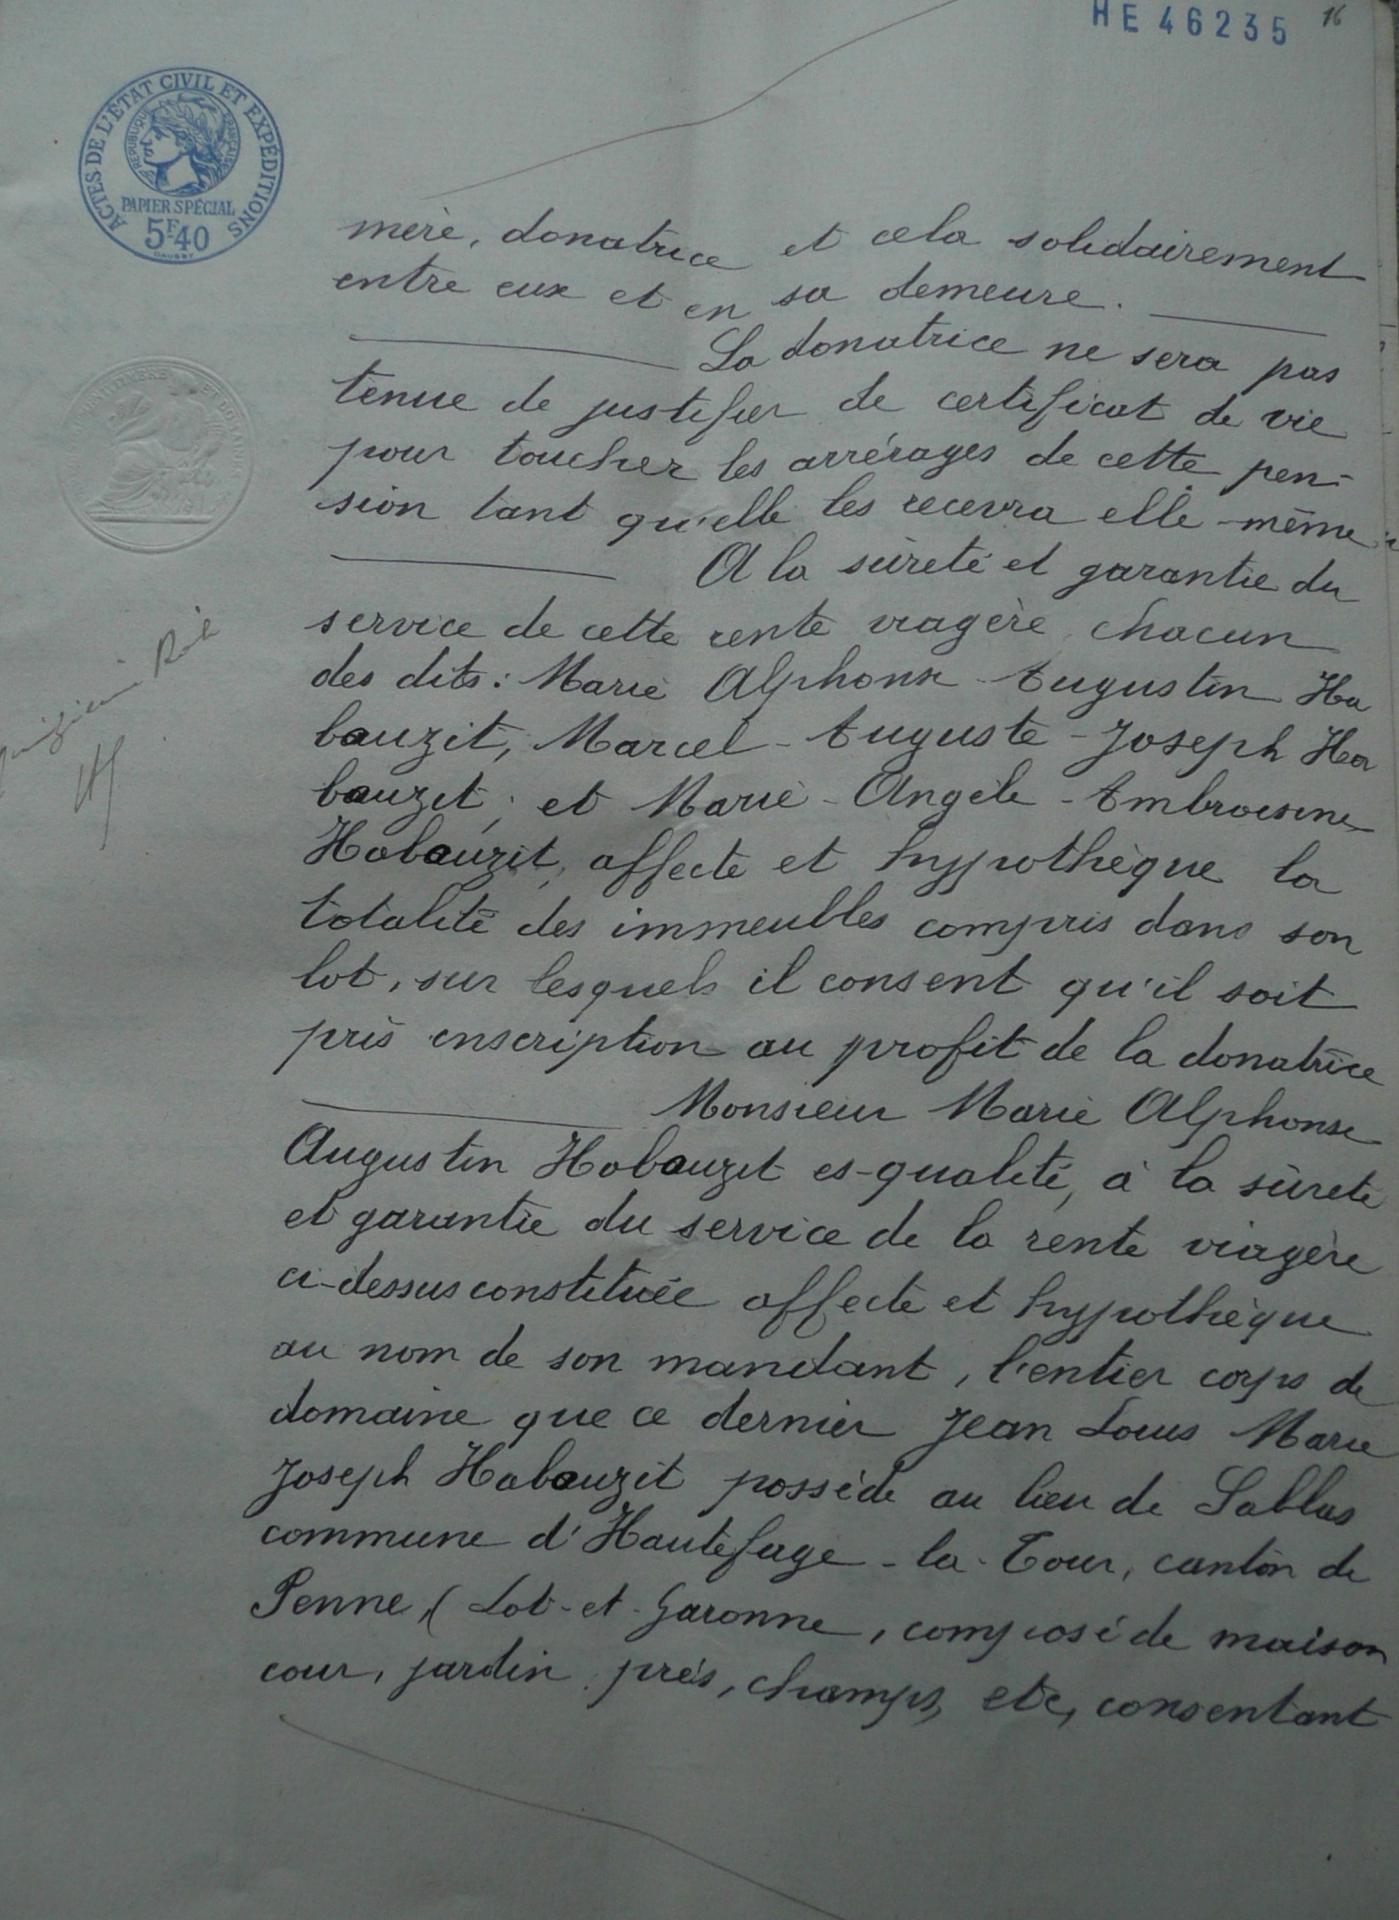 HE 46235
16
ACTES DE L'ÉTAT CIVIL ET EXPÉDITIONS
RÉPUBLIQUE FRANÇAISE
PAPIER SPÉCIAL
5F40
mère, donatrice et cela solidairement
entre eux et en sa demeure.
La donatrice ne sera pas
tenue de justifier de certificat de vie
pour toucher les arrérages de cette pen-
sion tant qu'elle les recevra elle-même
A la sûreté et garantie du
service de cette rente viagère, chacun
des dits: Marie Alphonse Augustin Ha
bauzit, Marcel-Auguste-Joseph Ha
bauzit, et Marie-Angèle-Ambroisine
Habauzit, affecte et hypothèque la
totalité des immeubles compris dans son
lot, sur lesquels il consent qu'il soit
pris inscription au profit de la donatrice
Monsieur Marie Alphonse
Augustin Habauzit es-qualité, à la sûreté
et garantie du service de la rente viagère
ci-dessus constituée affecte et hypothèque
au nom de son mandant, l'entier corps de
domaine que ce dernier Jean Louis Marie
Joseph Habauzit possède au lieu de Sablas
commune d'Hautefage-la-Tour, canton de
Penne, (Lot-et-Garonne, composé de maison
cour, jardin prés, champs, etc, consentant
Rôle